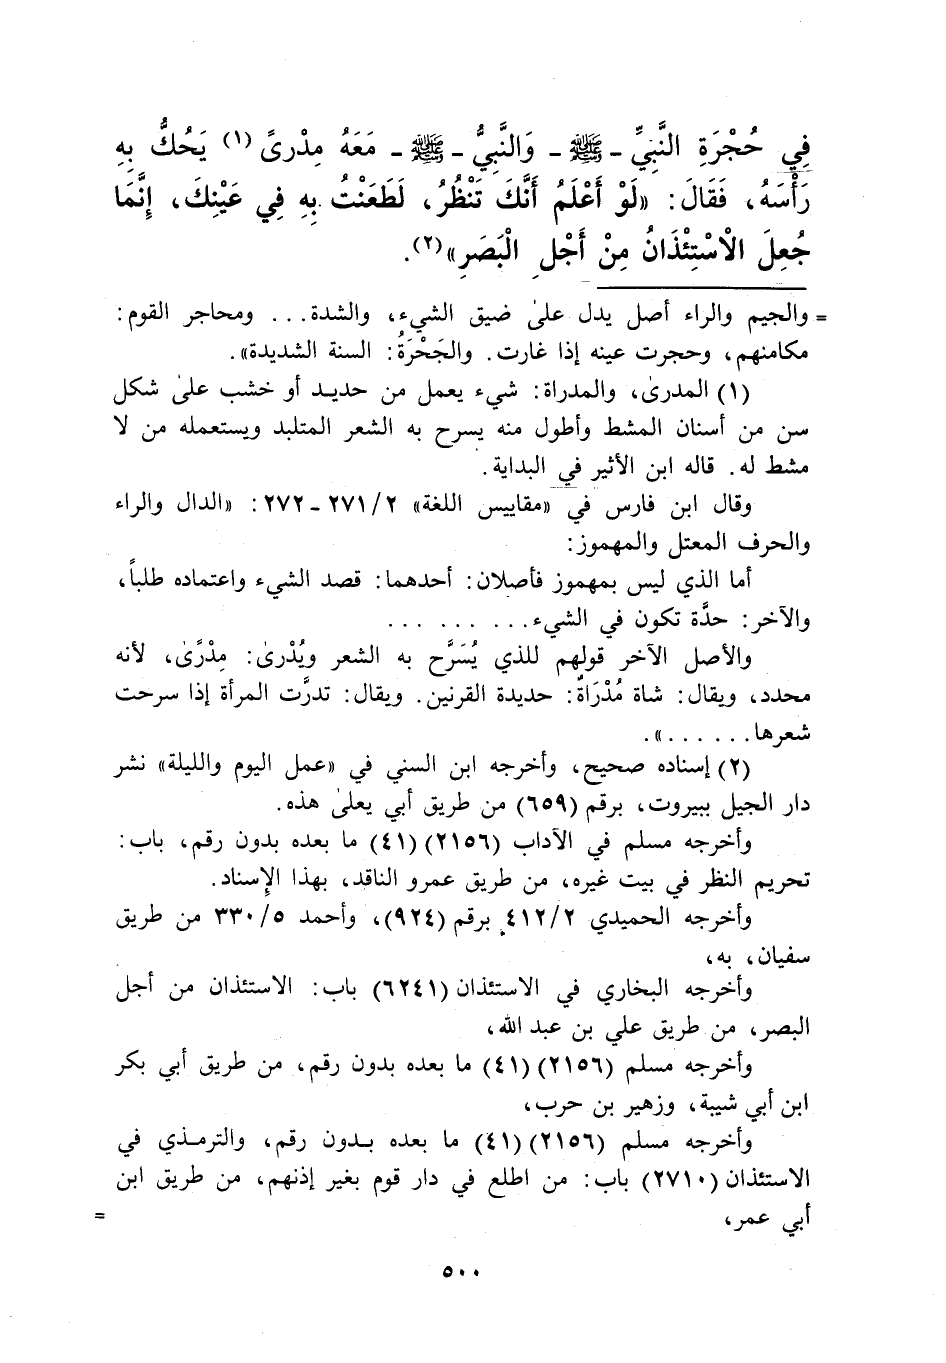 فِي حُجْرَةِ النَّبِيِّ ـ ﷺ ـ وَالنَّبِيُّ ـ ﷺ ـ مَعَهُ مِدْرىً (١) يَحُكُّ بِهِ
رَأْسَهُ، فَقَالَ: «لَوْ أَعْلَمُ أَنَّكَ تَنْظُرُ، لَطَعَنْتُ بِهِ فِي عَيْنِكَ، إِنَّمَا
جُعِلَ الْاسْتِئْذَانُ مِنْ أَجْلِ الْبَصَرِ»(٢).
= والجيم والراء أصل يدل علىٰ ضيق الشيء، والشدة... ومحاجر القوم:
مكامنهم، وحجرت عينه إذا غارت. والجَحْرَةُ: السنة الشديدة».
(١) المدرىٰ، والمدراة: شيء يعمل من حديد أو خشب علىٰ شكل
سن من أسنان المشط وأطول منه يسرح به الشعر المتلبد ويستعمله من لا
مشط له. قاله ابن الأثير في البداية.
وقال ابن فارس في «مقاييس اللغة» ٢/ ٢٧١ ـ ٢٧٢: «الدال والراء
والحرف المعتل والمهموز:
أما الذي ليس بمهموز فأصلان: أحدهما: قصد الشيء واعتماده طلباً،
والآخر: حدَّة تكون في الشيء... ... ...
والأصل الآخر قولهم للذي يُسَرَّح به الشعر ويُدْرىٰ: مِدْرَىٰ، لأنه
محدد، ويقال: شاة مُدْرَاةٌ: حديدة القرنين. ويقال: تدرَّت المرأة إذا سرحت
شعرها......».
(٢) إسناده صحيح، وأخرجه ابن السني في «عمل اليوم والليلة» نشر
دار الجيل ببيروت، برقم (٦٥٩) من طريق أبي يعلىٰ هذه.
وأخرجه مسلم في الآداب (٢١٥٦) (٤١) ما بعده بدون رقم، باب:
تحريم النظر في بيت غيره، من طريق عمرو الناقد، بهذا الإسناد.
وأخرجه الحميدي ٢/ ٤١٢ برقم (٩٢٤)، وأحمد ٥/ ٣٣٠ من طريق
سفيان، به،
وأخرجه البخاري في الاستئذان (٦٢٤١) باب: الاستئذان من أجل
البصر، من طريق علي بن عبد الله،
وأخرجه مسلم (٢١٥٦) (٤١) ما بعده بدون رقم، من طريق أبي بكر
ابن أبي شيبة، وزهير بن حرب،
وأخرجه مسلم (٢١٥٦) (٤١) ما بعده بدون رقم، والترمذي في
الاستئذان (٢٧١٠) باب: من اطلع في دار قوم بغير إذنهم، من طريق ابن
أبي عمر، =
٥٠٠